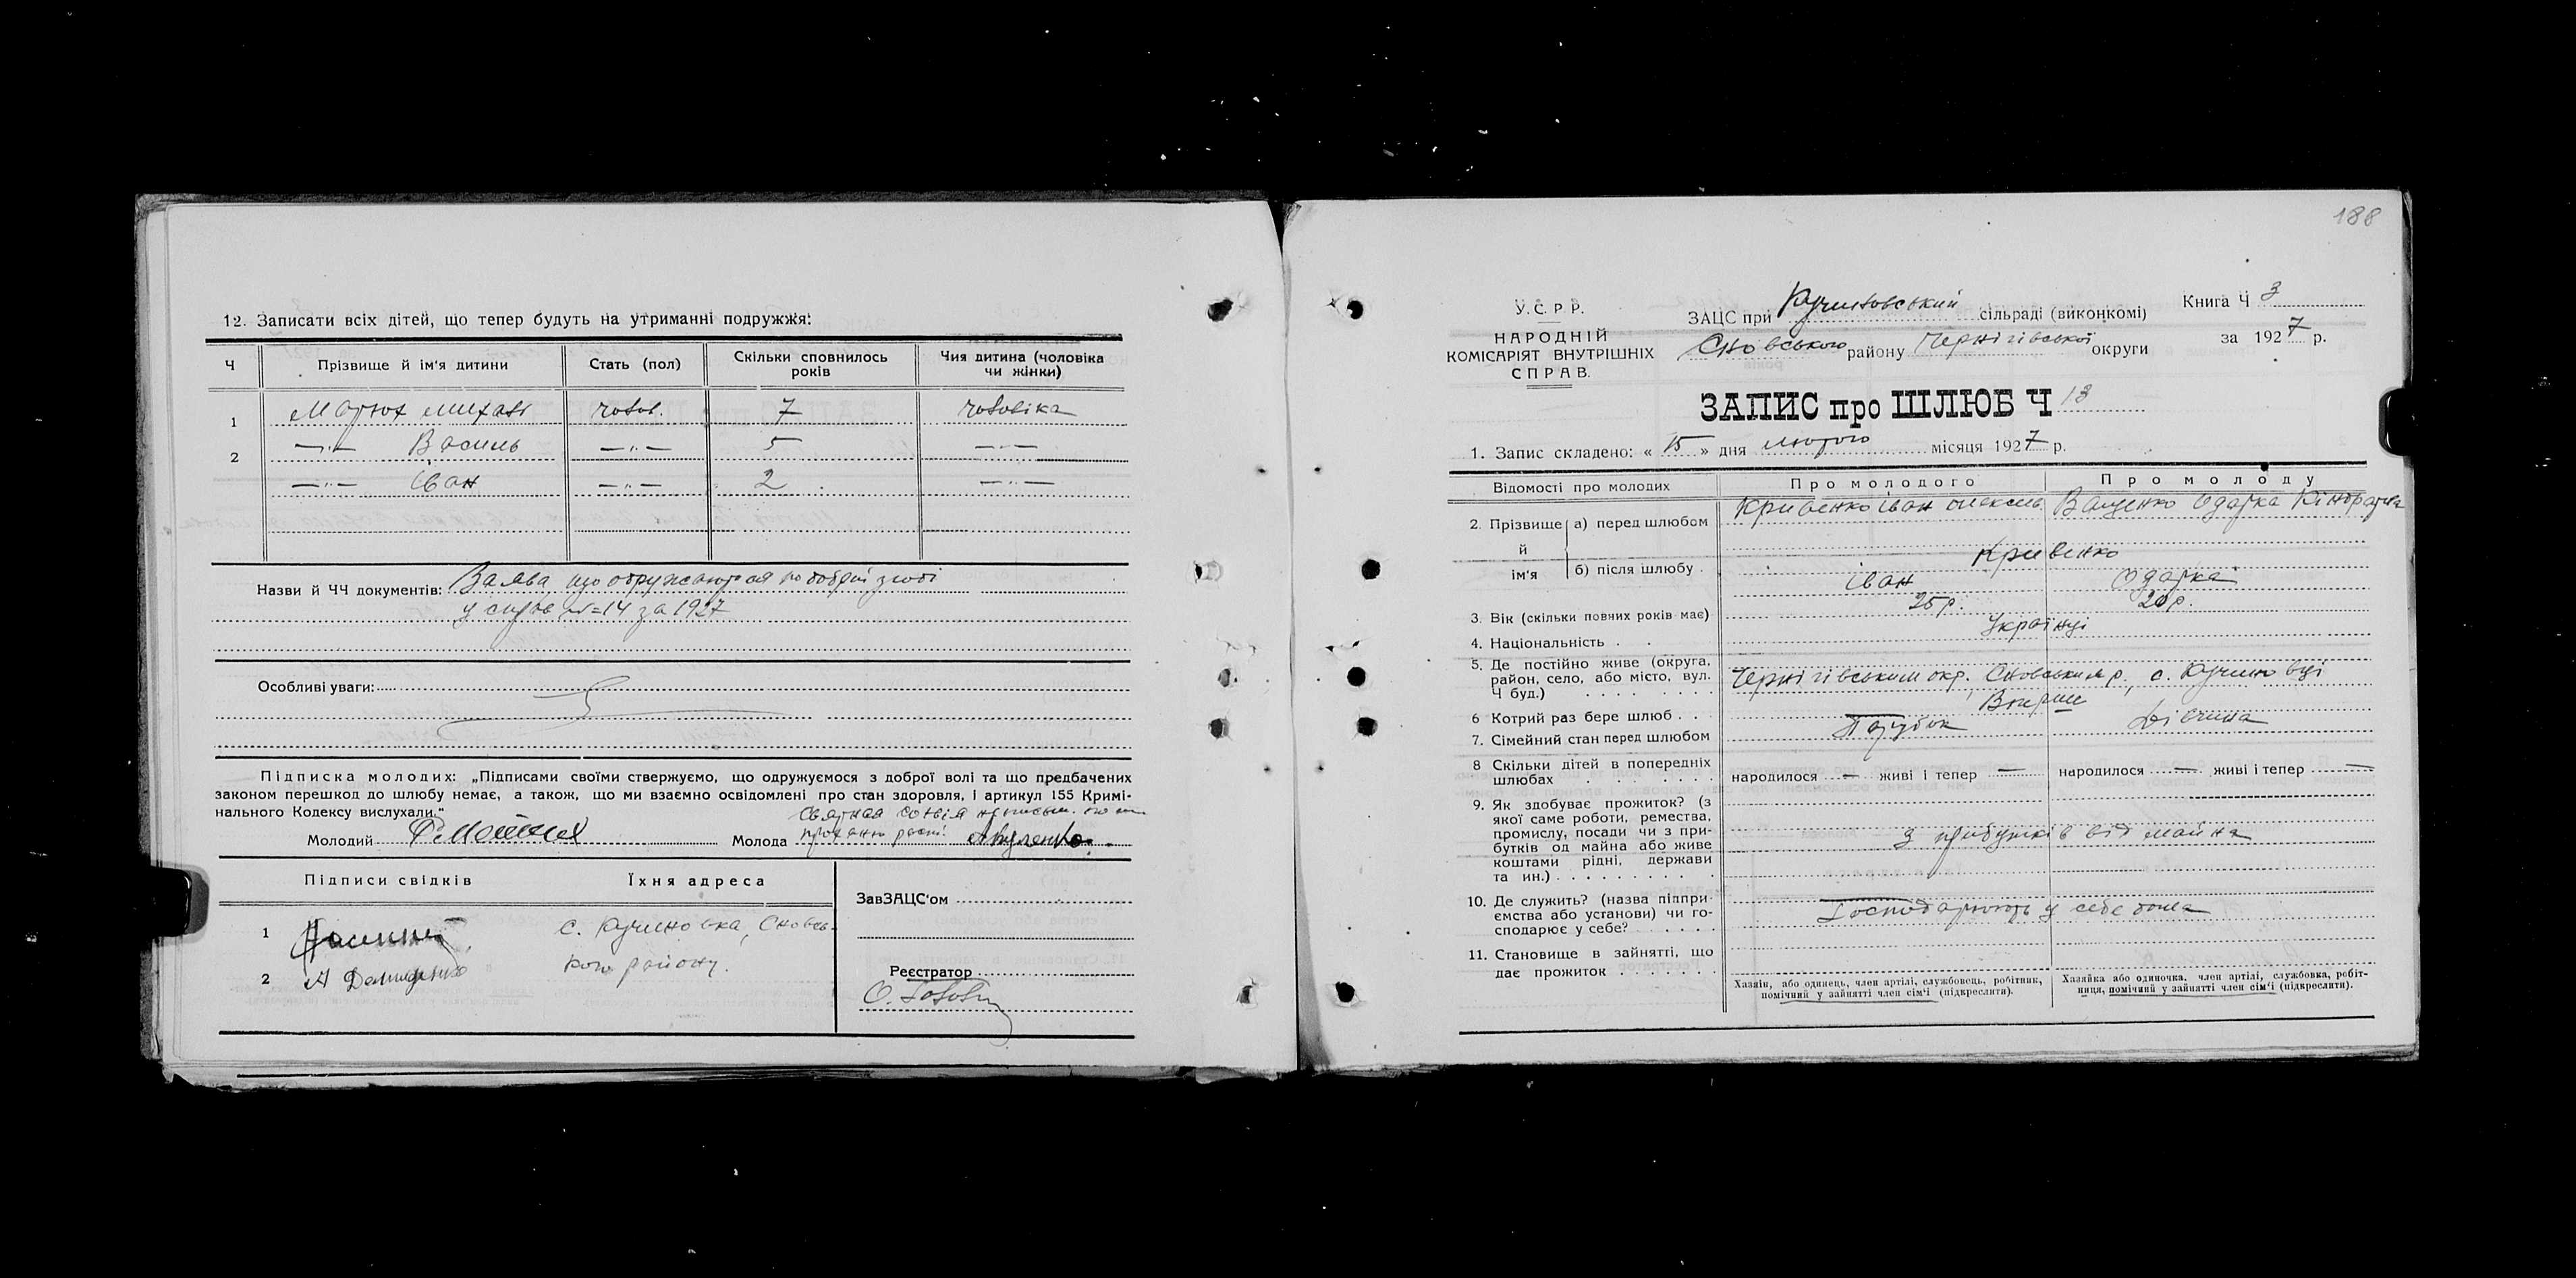 12. Записати всіх дітей, що тепер будуть на утриманні подружжя:
Ч Прізвище й ім'я дитини Стать (пол) Скільки сповнилось років Чия дитина (чоловіка чи жінки)
1 Михайл чолов. 7 чоловіка
2 —„— Василь —„— 5 —„—
—„— Іван —„— 2 —„—
Назви й ЧЧ документів: Заява, що одружаються по добрій згоді
у справ №=14 за 1927
Особливі уваги:
Підписка молодих: „Підписами своїми стверджуємо, що одружуємося з доброї волі та що предбачених
законом перешкод до шлюбу немає, а також, що ми взаємно освідомлені про стан здоров'я, і артикул 155 Кримі-
нального Кодексу вислухали."
Молодий Молода
Підписи свідків Їхня адреса
ЗавЗАЦС'ом
1 с. Кучиновка, Сновсь-
2 А Демиденко кого району.
Реєстратор
188
У.С.Р.Р.
НАРОДНІЙ
КОМІСАРІЯТ ВНУТРІШНІХ
СПРАВ.
ЗАЦС при Кучиновський сільраді (виконкомі)
Сновського району Чернігівської округи
Книга Ч 3
за 1927 р.
ЗАПИС про ШЛЮБ Ч 13
1. Запис складено: « 15 » дня лютого місяця 1927 р.
Відомості про молодих Про молодого Про молоду
2. Прізвище й ім'я а) перед шлюбом Кривенко Іван Олексів. Ващенко Одарка Кіндратівна
б) після шлюбу Кривенко
Іван Одарка
3. Вік (скільки повних років має) 25 р. 20 р.
4. Національність Українці
5. Де постійно живе (округа,
район, село, або місто, вул.
Ч буд.) Чернігівським окр. Сновським р., с. Кучиновці
6 Котрий раз бере шлюб Вперше
7. Сімейний стан перед шлюбом Парубок Дівчина
8 Скільки дітей в попередніх
шлюбах народилося — живі і тепер — народилося — живі і тепер —
9. Як здобуває прожиток? (з
якої саме роботи, ремества,
промислу, посади чи з при-
бутків од майна або живе
коштами рідні, держави
та ин.) З прибутків від майна
10. Де служить? (назва підпри-
ємства або установи) чи го-
сподарює у себе? Господарюють у себе дома
11. Становище в зайнятті, що
дає прожиток
Хазяїн, або одинець, член артілі, службовець, робітник,
помічний у зайнятті член сім'ї (підкреслити).
Хазяйка або одиночка, член артілі, службовка, робіт-
ниця, помічний у зайнятті член сім'ї (підкреслити).